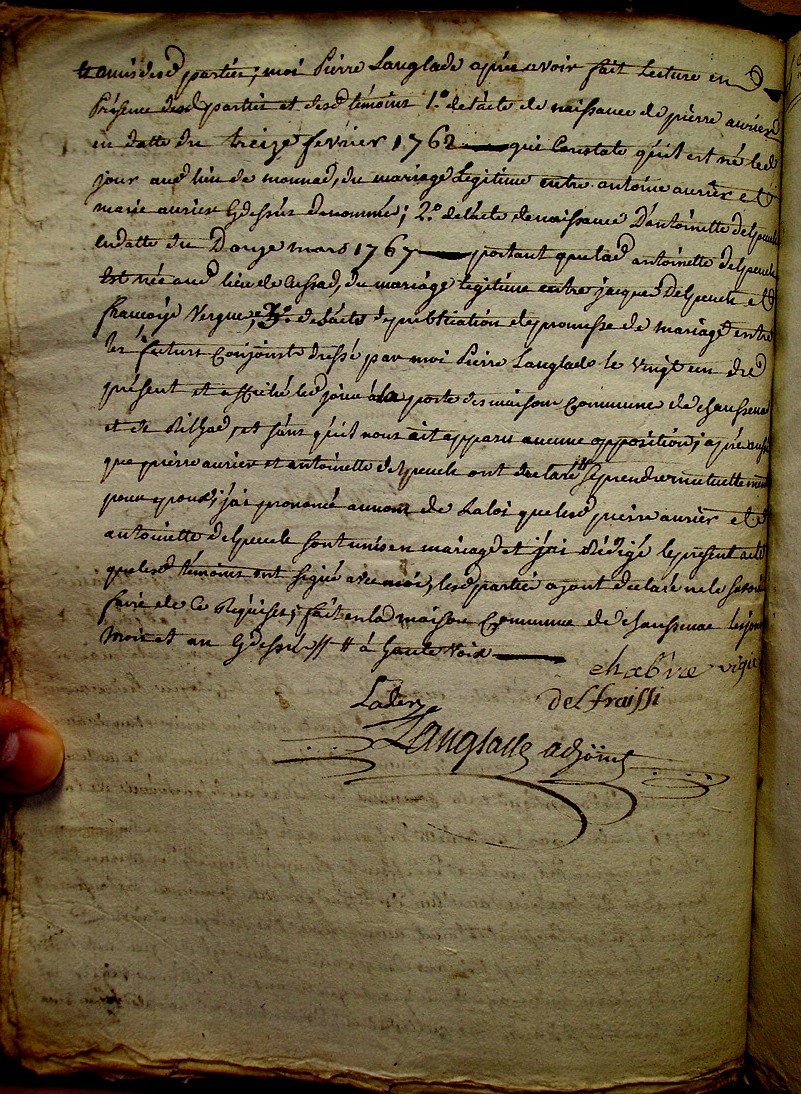 et amis desd parties; moi Pierre Langlade après avoir fait Lecture en
Présence desd partie et desd témoins 1.º de l'acte de naissance de pierre aurier
en datte du treize fevrier 1762 qui Constate qu'il est né led
jour aud lieu de monnad, du mariage Legitime entre antoine aurier et
marie aurier Cydessus denommés; 2.º de l'acte denaissance D'antoinette delpeuch
endatte du Douze mars 1767 portant que lad antoinette delpeuch
Est née aud lieu de Cussad, du mariage légitime entre jacques Delpeuch et
françoise Vergne, 3.º de l'acte depublication de promesse de mariage entre
les futurs Conjoints dressé par moi Pierre Langlade le vingt un du
présent et affiché led jour à la porte des maisons Commune de chaussenac
et de Rilhac, et sans qu'il nous ait apparu aucune opposition; après aussi
que pierre aurier et antoinette delpeuch ont declaré # seprendre mutuellement
pour epoux, j'ai prononcé aunom de La loi que lesd pierre aurier et
antoinette delpeuch sont unis en mariage et j'ai rédigé le present acte
que lesd témoins ont signé avec moi, lesd partie ayant declaré ne le savoir
faire de Ce Réquises; fait en lad maison Commune de chaussenac les jour
Mois et an Cydessus # # à haute voix
chabre
delfraissi
Langlade adjoint